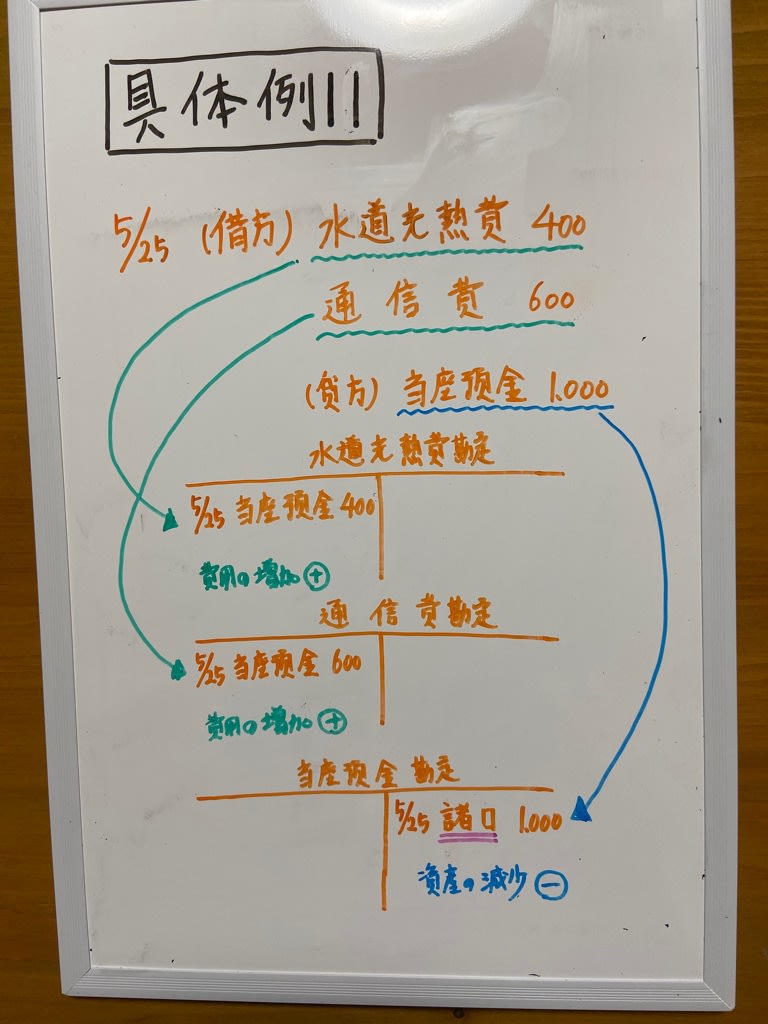 具体例!!
5/25 (借方) 水道光熱費 400
通信費 600
(貸方) 当座預金 1.000
水道光熱費勘定
5/25 当座預金 400
費用の増加 ⊕
通信費勘定
5/25 当座預金 600
費用の増加 ⊕
当座預金勘定
5/25 諸口 1.000
資産の減少 ⊖